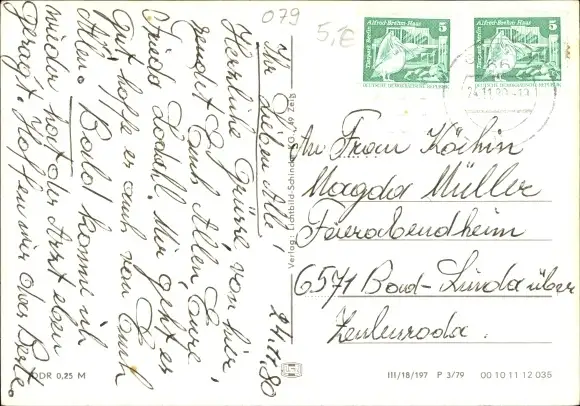 079
5,€
Ihr Lieben Alle!
Herzliche Grüsse, von hier,
sendet Euch Allen, Eure
Frida Mir geht es
gut, hoffe es auch von Euch
Allen. Bald komme ich
wieder, hat der Arzt eben
gesagt. Hoffen wir das Beste.
24.11.80
Verlag: Lichtbild-Schincke KG, 49 Zeitz
Tierpark Berlin
Alfred-Brehm-Haus
5
DEUTSCHE DEMOKRATISCHE REPUBLIK
Tierpark Berlin
Alfred-Brehm-Haus
5
DEUTSCHE DEMOKRATISCHE REPUBLIK
An Frau Köchin
Magda Müller
Feierabendheim
6571 Bad-Linda über
Zeulenroda.
DDR 0,25 M
III/18/197 P 3/79 00 10 11 12 035